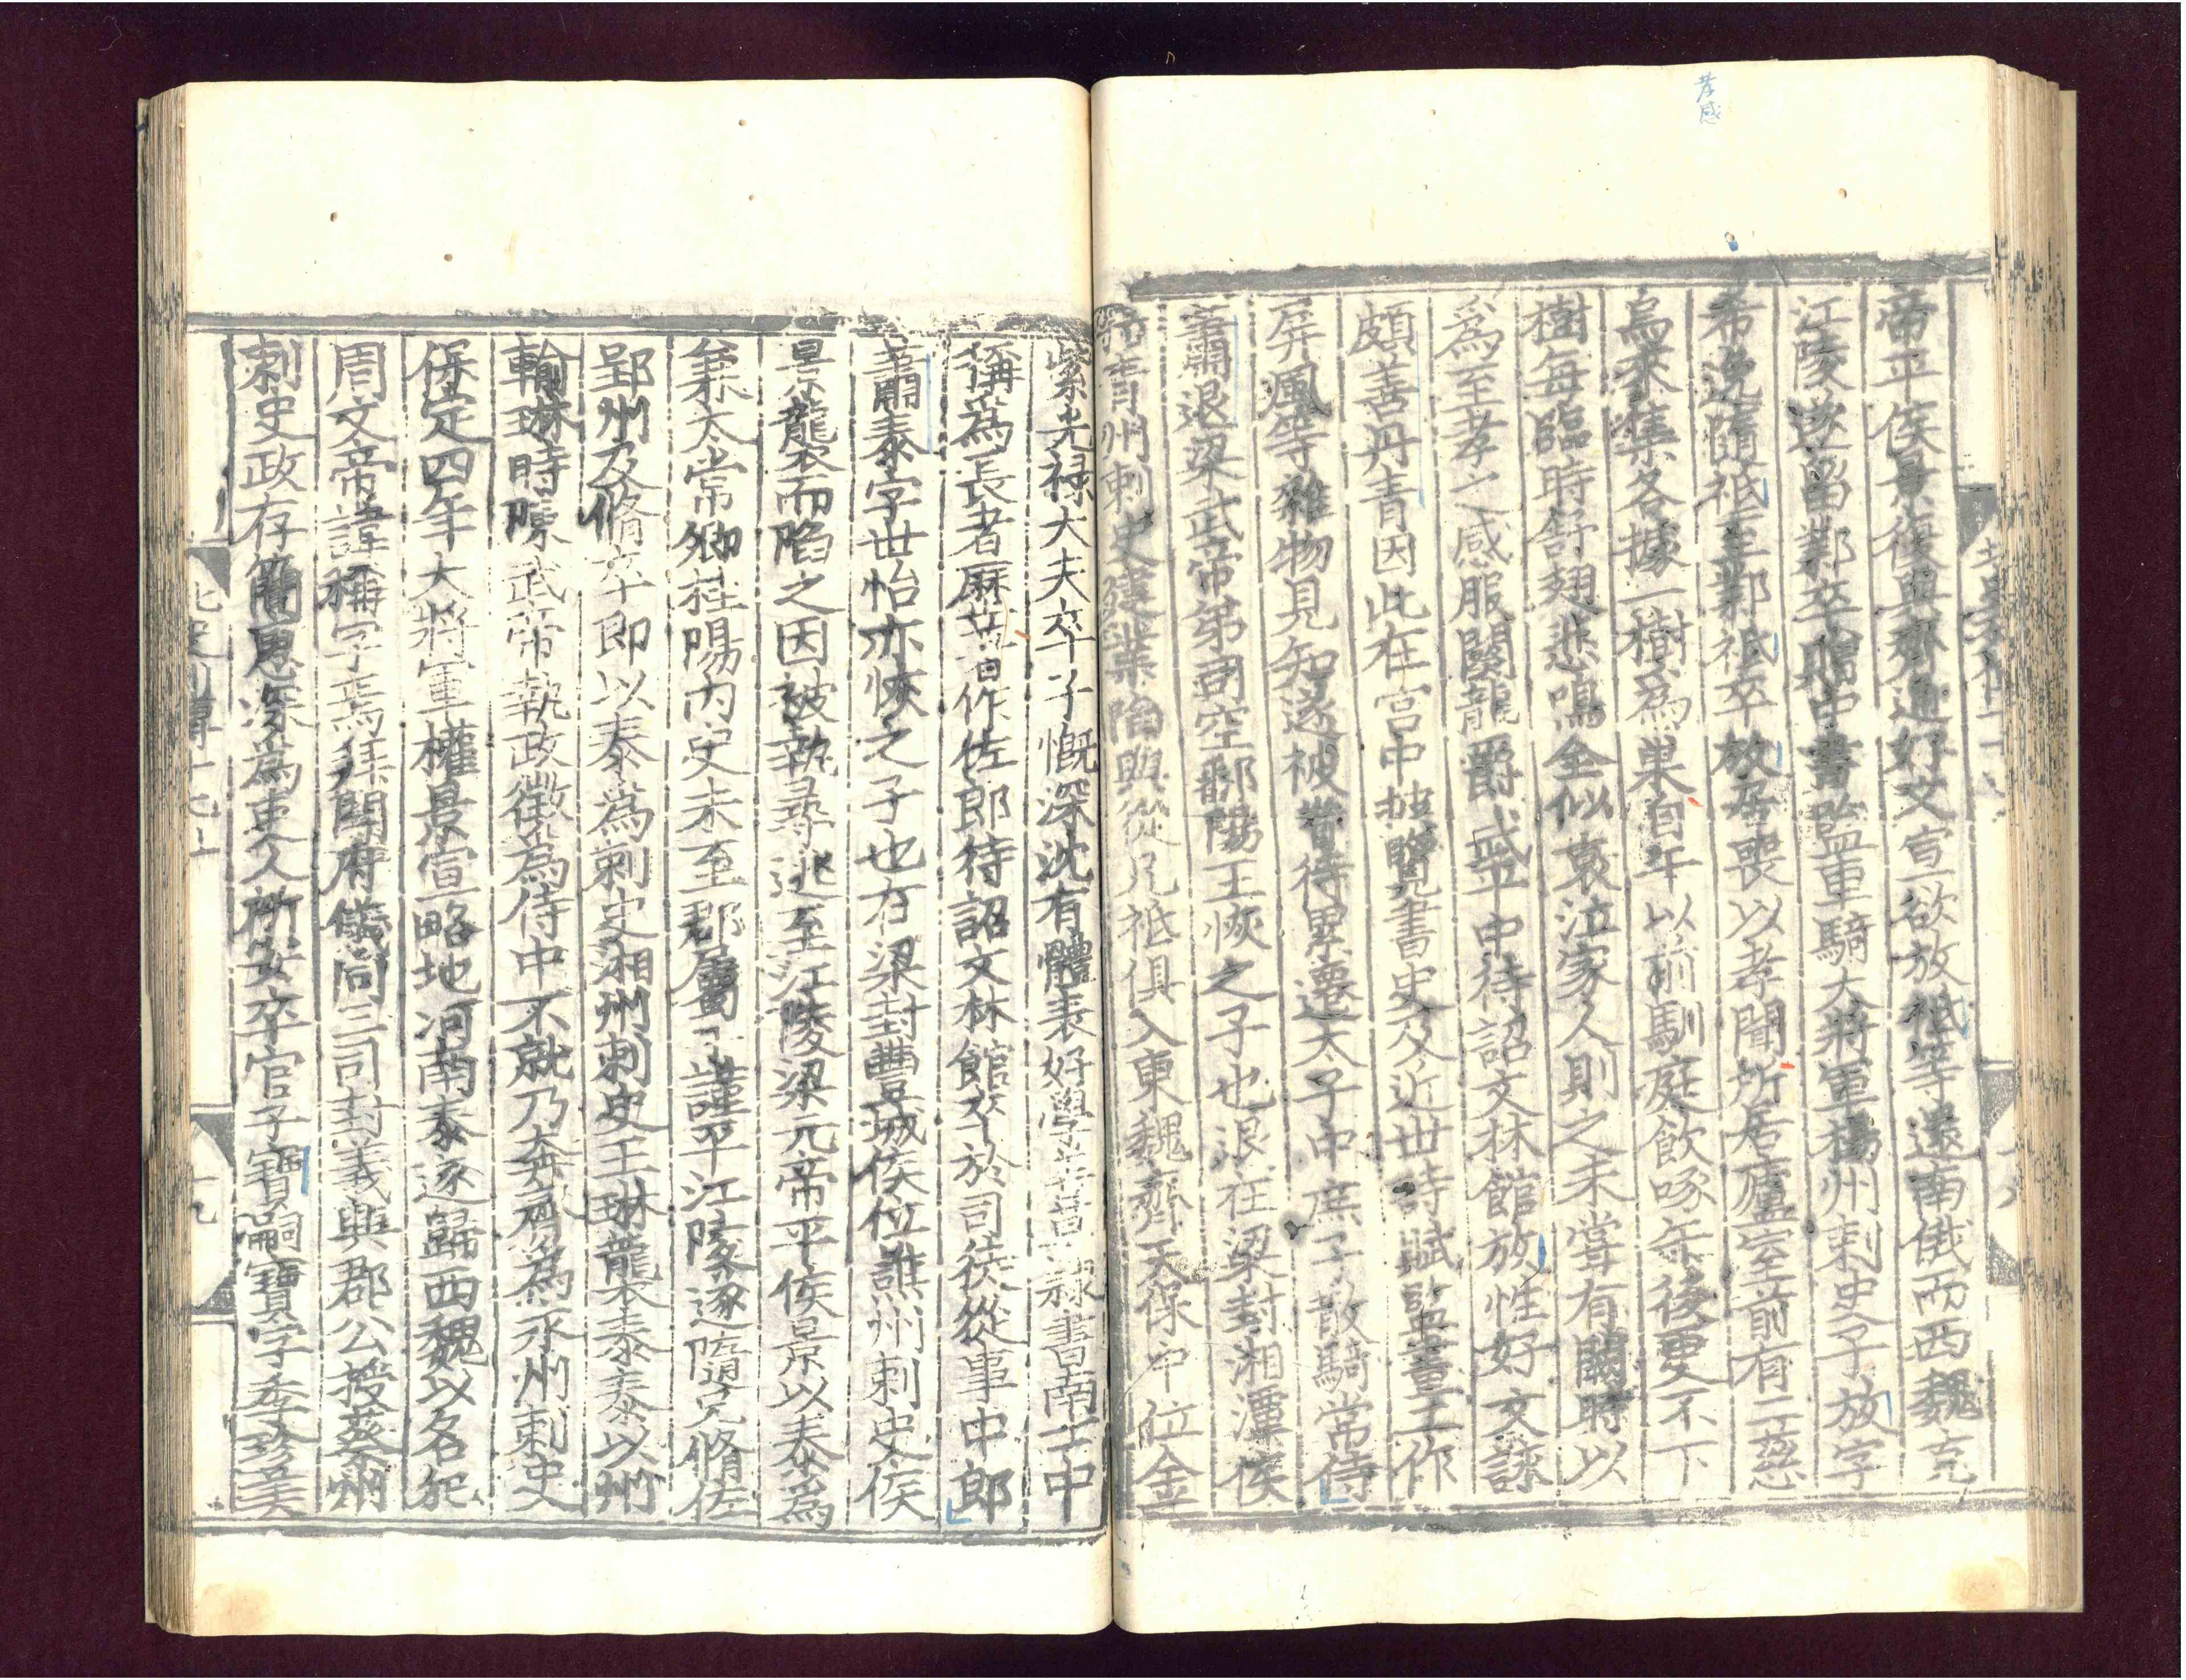 孝感
帝平侯景復與齊通好文宣欲放祗等還南俄而西魏克
江陵遂留鄴卒贈中書監車騎大將軍揚州刺史子放字
希逸隨祗至鄴祗卒放居喪以孝聞所居廬室前有二慈
烏來集各據一樹爲巢自午以前馴庭飲啄午後更不下
樹每臨時舒翅悲鳴全似哀泣家人則之未嘗有闕時以
爲至孝之感服闋襲爵武平中待詔文林館放性好文詠
頗善丹青因此在宮中披覽書史及近世詩賦監畫工作
屏風等雜物見知遂被眷待累遷太子中庶子散騎常侍
蕭退梁武帝弟司空鄱陽王恢之子也退在梁封湘潭侯
位青州刺史建業陷與從兄祗俱入東魏齊天保中位金
紫光祿大夫卒子慨深沈有體表好學善草隸書南士中
稱爲長者歷著作佐郎待詔文林館卒於司徒從事中郎
蕭泰字世怡亦恢之子也在梁封豐城侯位譙州刺史侯
景襲而陷之因被執尋逃至江陵梁元帝平侯景以泰爲
兼太常卿桂陽內史未至郡屬于謹平江陵遂隨兄脩佐
郢州及脩卒即以泰爲刺史湘州刺史王琳襲泰泰以州
輸琳時陳武帝執政徵爲侍中不就乃奔齊爲永州刺史
保定四年大將軍權景宣略地河南泰遂歸西魏以名犯
周文帝諱稱字焉拜開府儀同三司封義興郡公授蔡州
刺史政存簡惠深爲吏人所安卒官子寶嗣寶字季珍美
北史列傳十七
十九